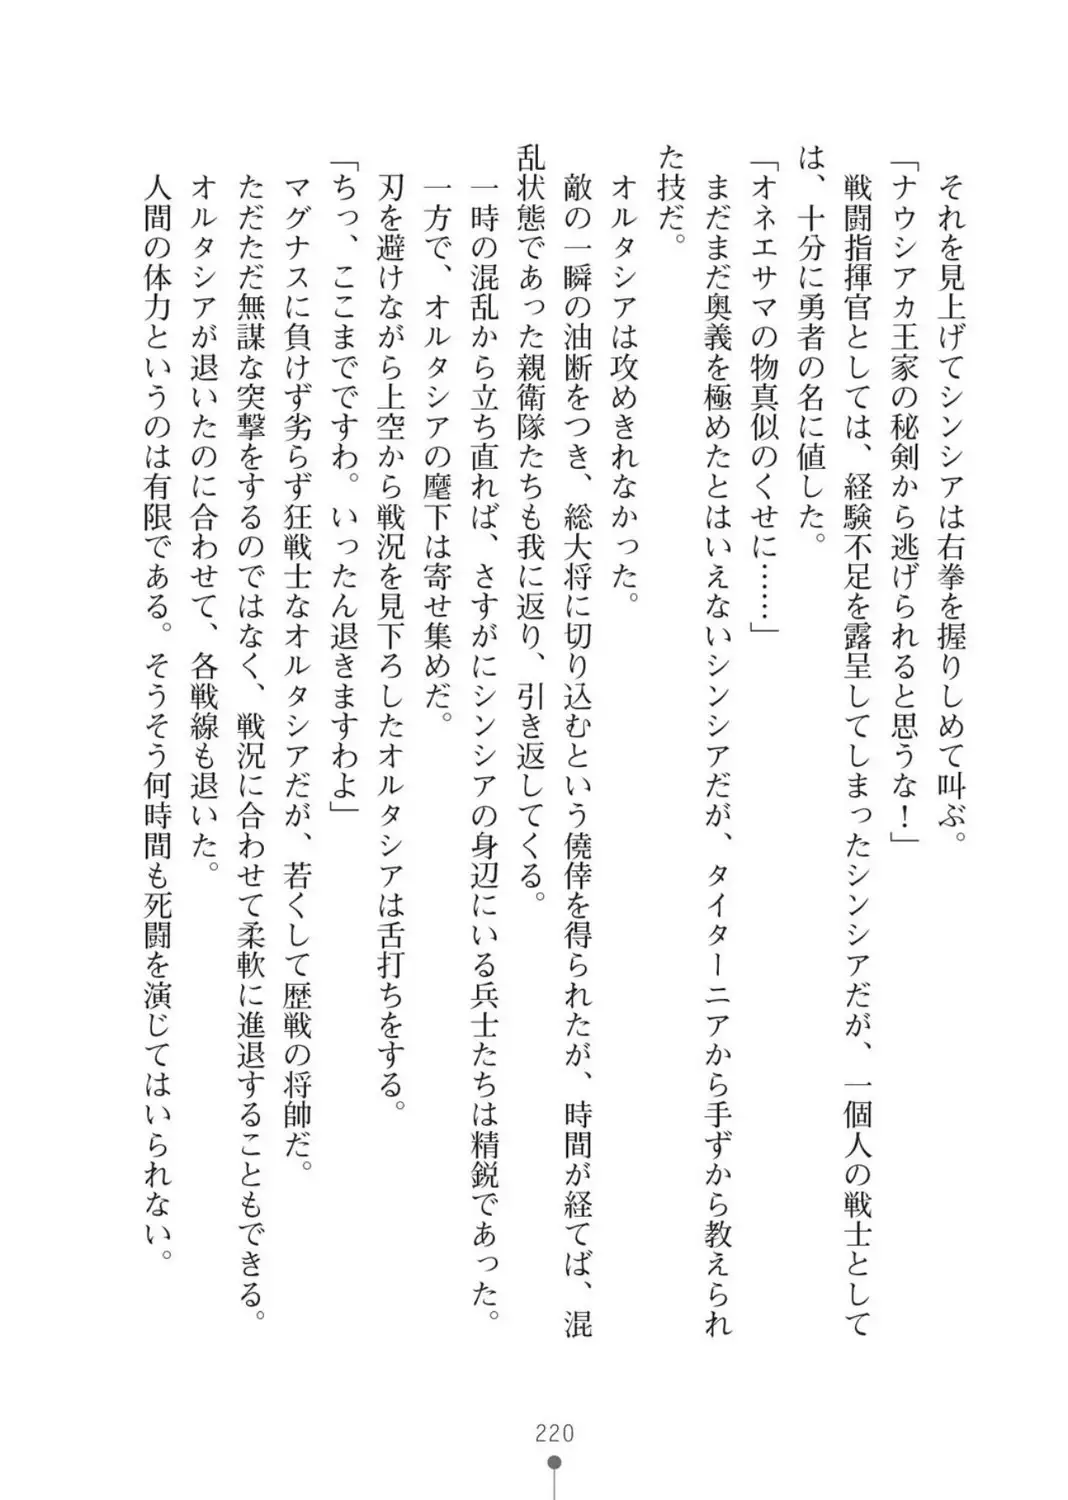 それを見上げてシンシアは右拳を握りしめて叫ぶ。
「ナウシアカ王家の秘剣から逃げられると思うな！」
戦闘指揮官としては、経験不足を露呈してしまったシンシアだが、一個人の戦士として
は、十分に勇者の名に値した。
「オネエサマの物真似のくせに……」
まだまだ奥義を極めたとはいえないシンシアだが、タイターニアから手ずから教えられ
た技だ。
オルタシアは攻めきれなかった。
敵の一瞬の油断をつき、総大将に切り込むという僥倖を得られたが、時間が経てば、混
乱状態であった親衛隊たちも我に返り、引き返してくる。
一時の混乱から立ち直れば、さすがにシンシアの身辺にいる兵士たちは精鋭であった。
一方で、オルタシアの麾下は寄せ集めだ。
刃を避けながら上空から戦況を見下ろしたオルタシアは舌打ちをする。
「ちっ、ここまでですわ。いったん退きますわよ」
マグナスに負けず劣らず狂戦士なオルタシアだが、若くして歴戦の将帥だ。
ただただ無謀な突撃をするのではなく、戦況に合わせて柔軟に進退することもできる。
オルタシアが退いたのに合わせて、各戦線も退いた。
人間の体力というのは有限である。そうそう何時間も死闘を演じてはいられない。
220